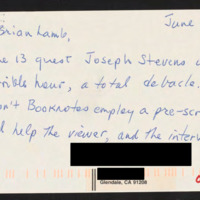 June
Brian Lamb,
e 13 guest Joseph Stevens
rible hour, a total debacle.
n't Booknotes employ a pre-scr
d help the viewer, and the interv
Glendale, CA 91206